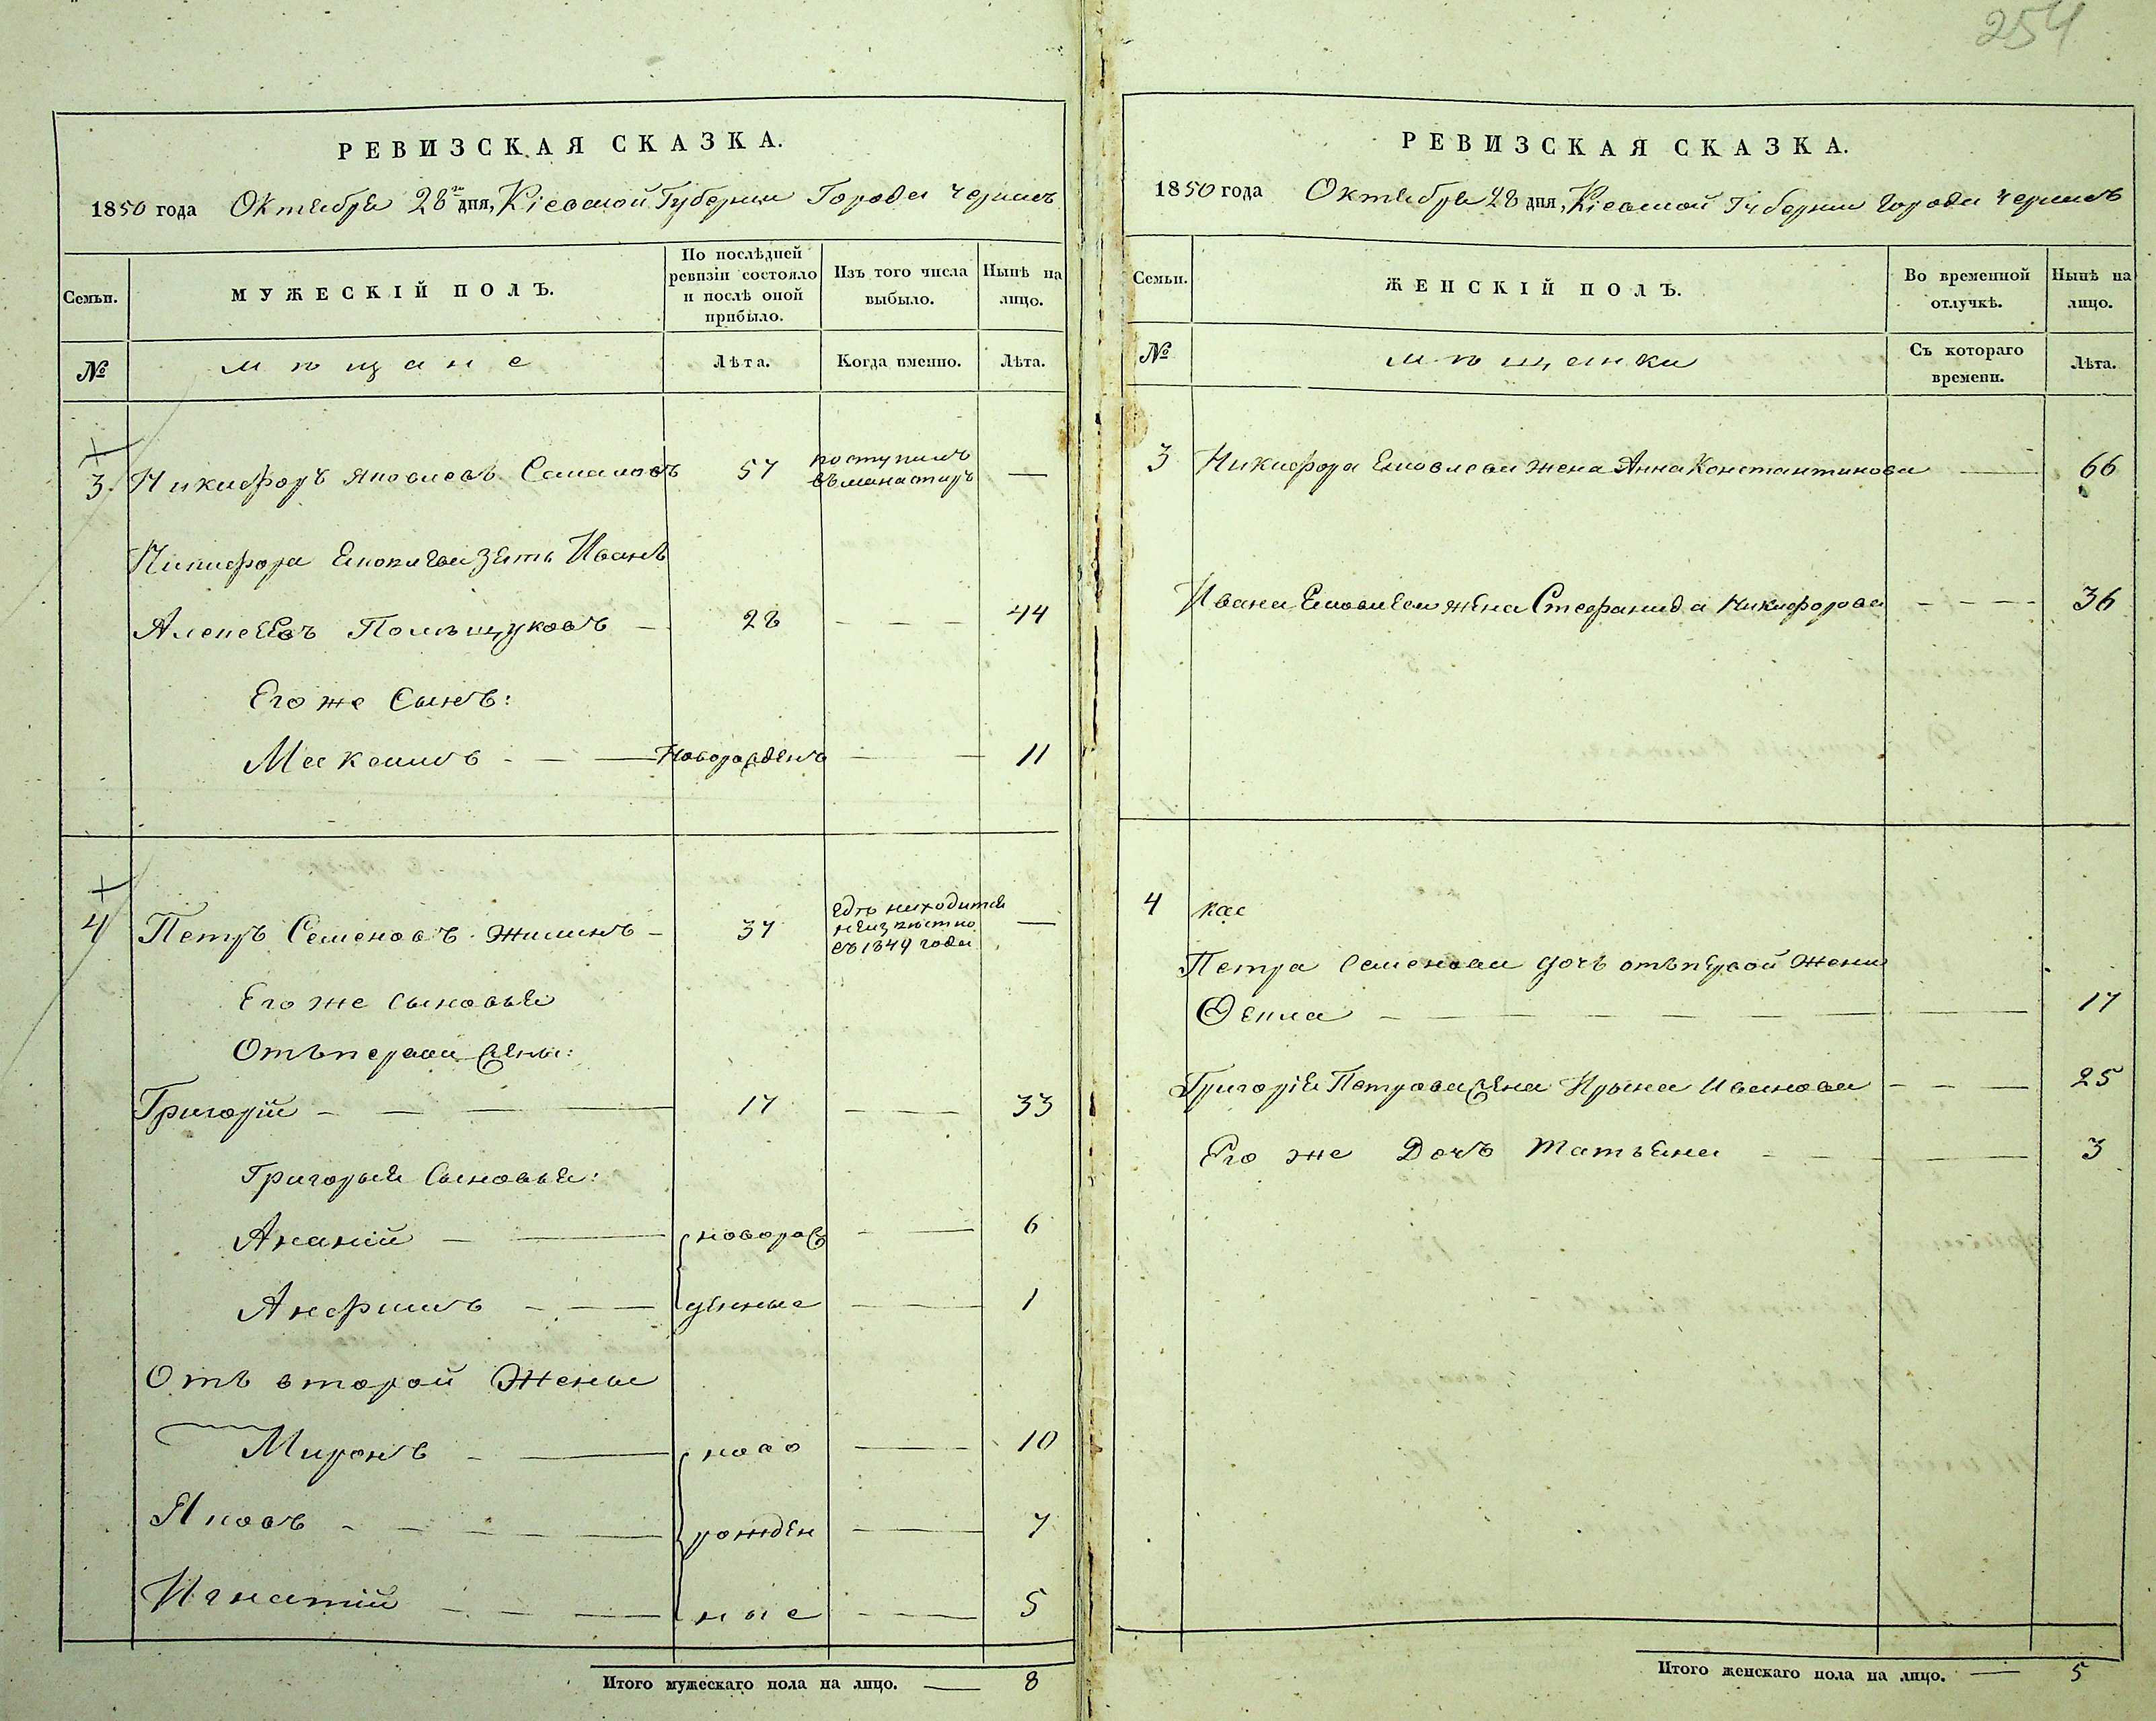 254
РЕВИЗСКАЯ СКАЗКА.
1850 года Октября 28го дня, Кіевской Губерніи Города Черкасъ
Семьи.
МУЖЕСКІЙ ПОЛЪ.
По послѣдней ревизіи состояло и послѣ оной прибыло.
Изъ того числа выбыло.
Нынѣ на лицо.
№
мѣщане
Лѣта.
Когда именно.
Лѣта.
3. Никифоръ Яковлевъ 57 поступилъ въ манастиръ —
Никифора Яковлева зять Иванъ
Алексеевъ Полѣщуковъ — 28 — — — 44
Его же Сынъ:
Максимъ — — — Новорожденъ — — 11
4 Петръ Семеновъ Жилинъ — 37 гдѣ находится неизвѣстно съ 1849 года —
Его же сыновья
Отъ первой жены:
Григорій — — — — 17 — — — 33
Григорья Сыновья:
Ананій — — новорож — — 6
Анфимъ — — — денные — — — 1
Отъ второй Жены
Миронъ — — ново — 10
Яковъ — — — — — рожден — 7
Игнатій — — — ные — — 5
Итого мужескаго пола на лицо. — 8
РЕВИЗСКАЯ СКАЗКА.
1850 года Октября 28 дня, Кіевской Губерніи города Черкасъ
Семьи.
ЖЕНСКІЙ ПОЛЪ.
Во временной отлучкѣ.
Нынѣ на лицо.
№
мѣщанки
Съ котораго времени.
Лѣта.
3 Никифора Яковлева жена Анна Константинова — 66
Ивана жена Стефанида Никифорова — — — — 36
4
Петра Семенова дочь отъ первой жены
Фекла — — — — — — — — — 17
Григорія Петрова жена Ирына Иванова — — — 25
Его же Дочъ Татьяна — — — — 3
Итого женскаго пола на лицо. — 5